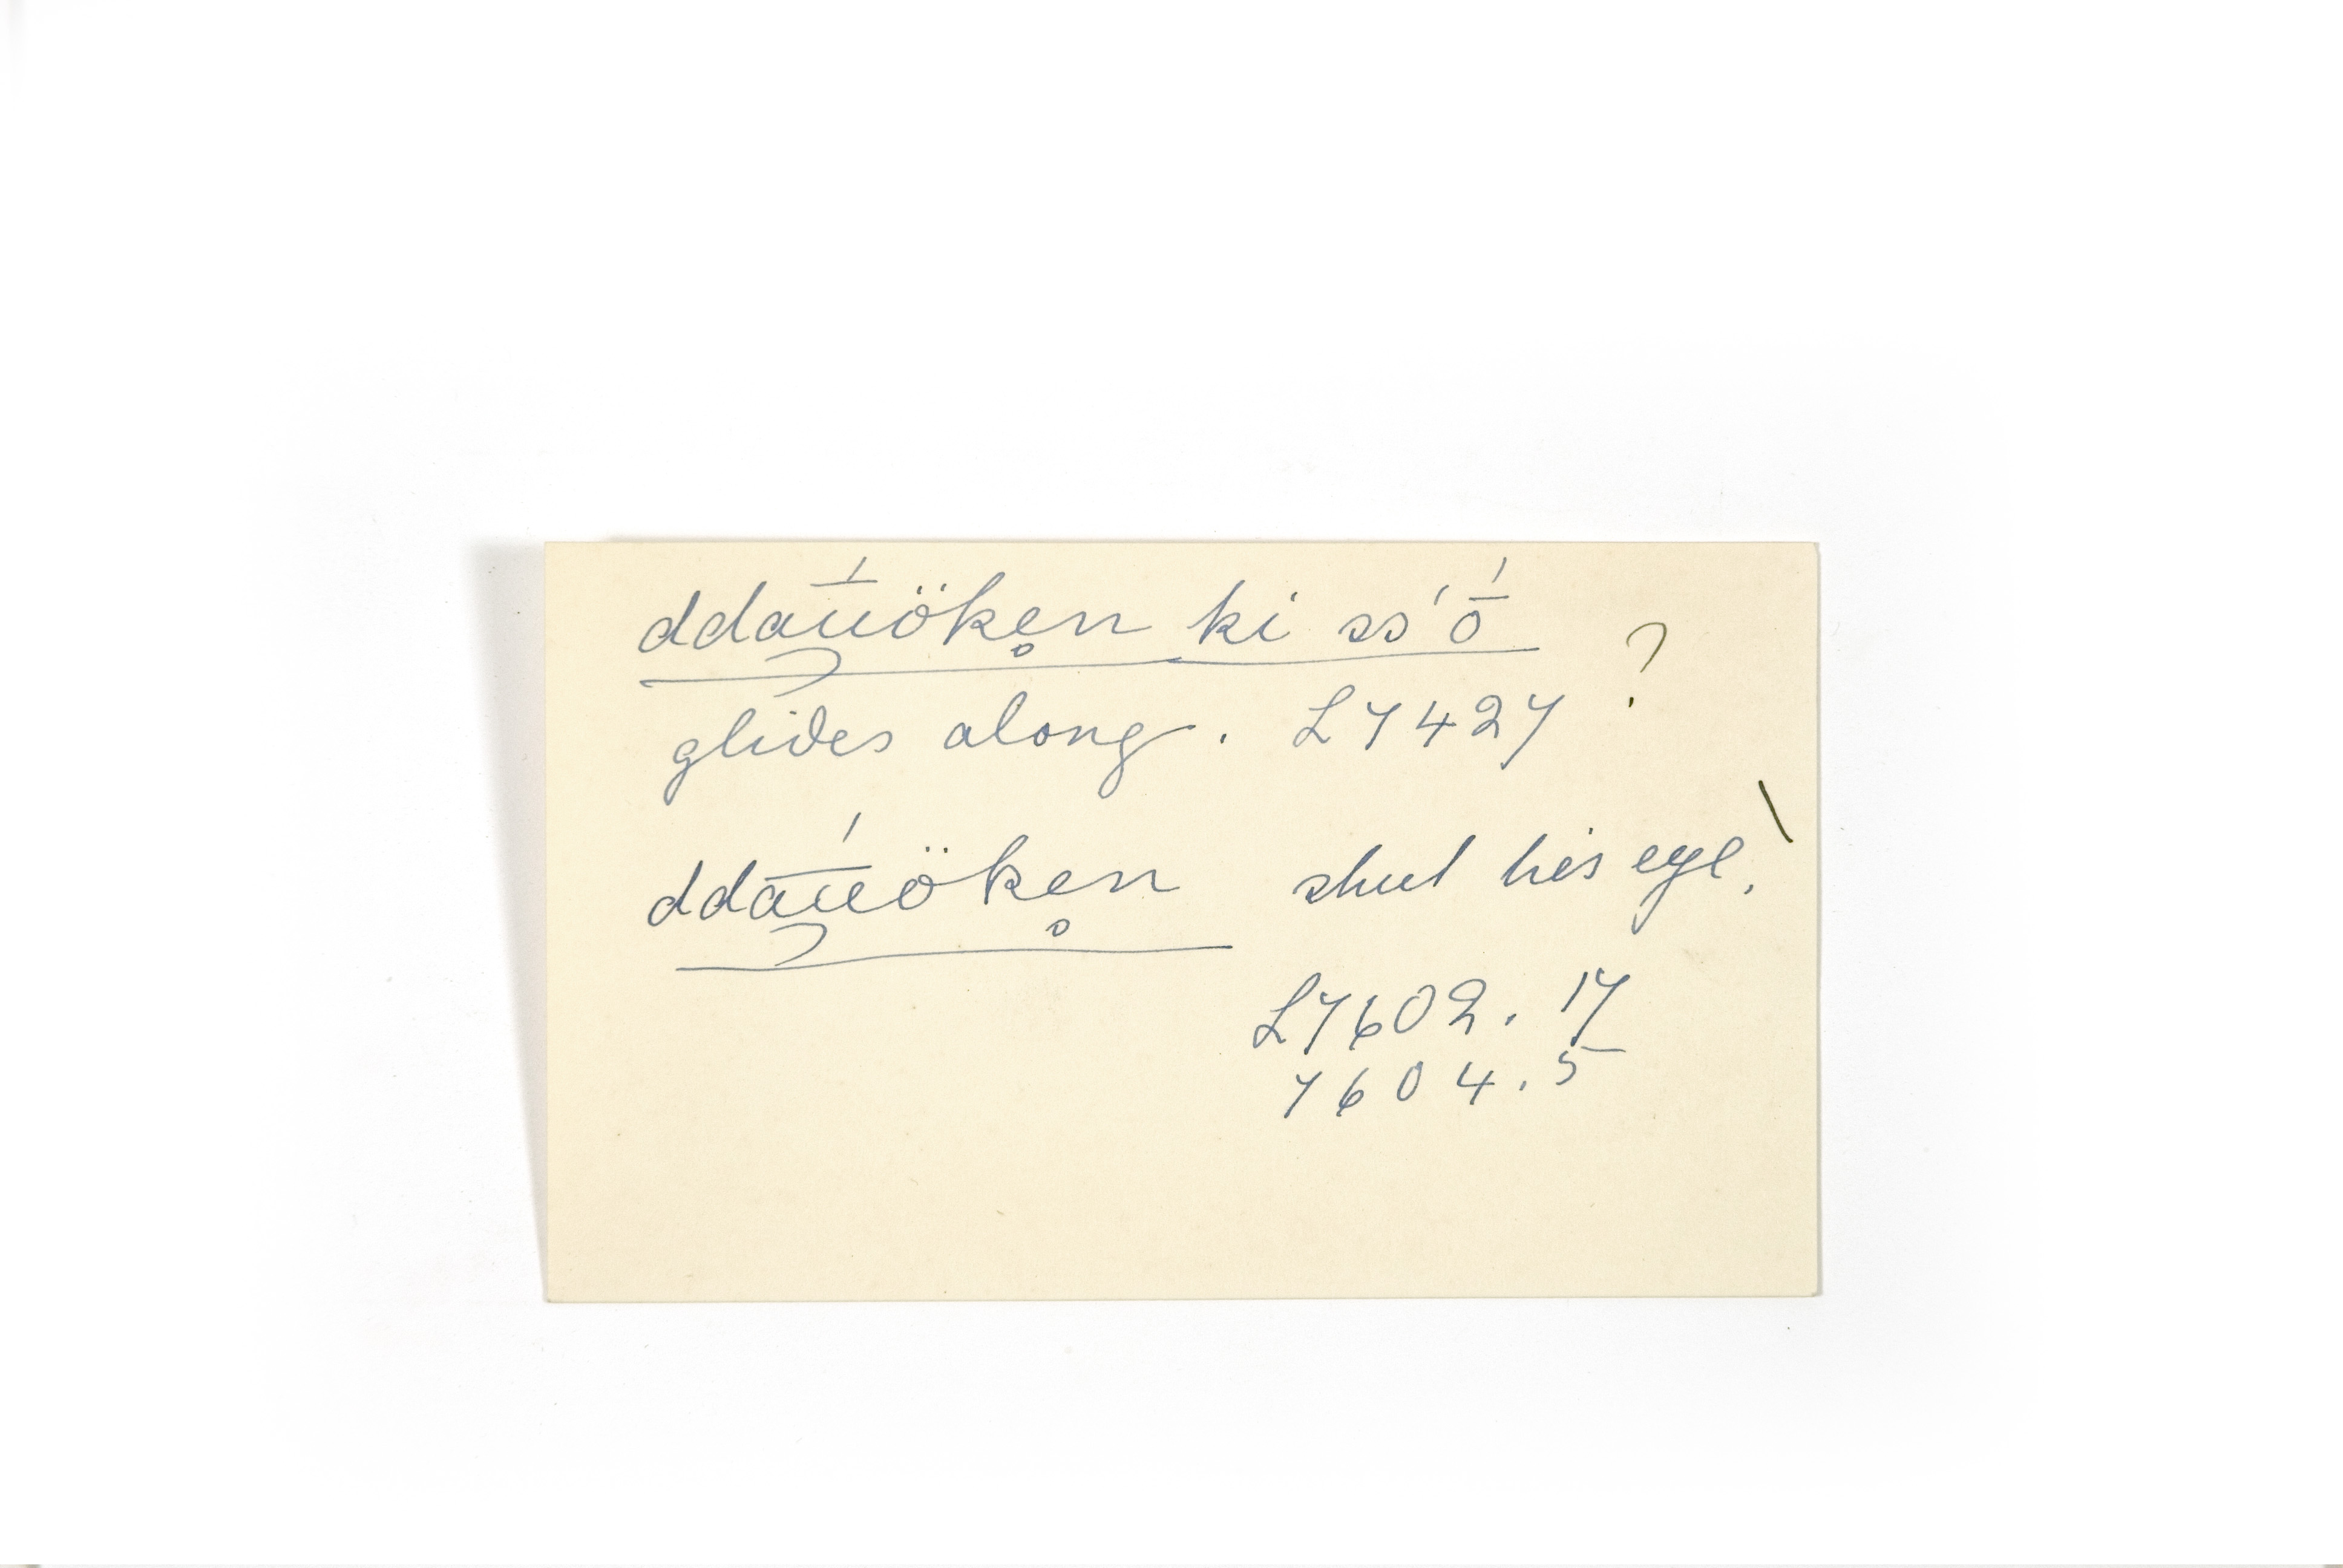 ddāú̯öken̥ ki ss'ṓ ?
glides along. L7427
ddāú̯öken̥ shut his eye.
L7602.17
7604.5